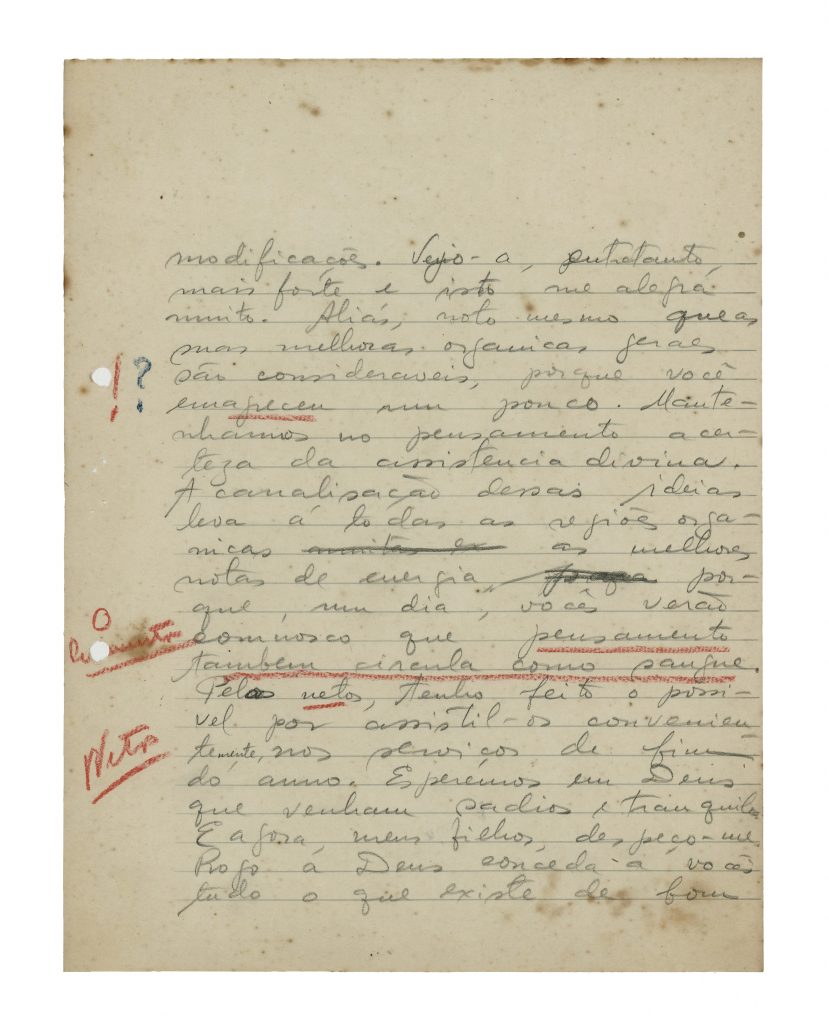 modificações. Vejo-a, entretanto,
mais forte e isto me alegra
muito. Aliás, noto mesmo que as
suas melhoras organicas geraes
são consideraveis, porque você
! ?
emagreceu um pouco. Mante-
nhamos no pensamento a cer-
teza da assistencia divina.
A canalisação dessas ideias
leva á todas as regiões orga-
nicas as melhores
notas de energia, por-
que, um dia, vocês verão
O
comnosco que pensamento
tambem circula como sangue.
Pelos netos, tenho feito o possi-
vel por assistil-os convenien-
Netos
temente, nos serviços de fim
do anno. Esperemos em Deus
que venham sadios e tranquilos.
E agora, meus filhos, despeço-me.
Rogo á Deus conceda a vocês
tudo o que existe de bom